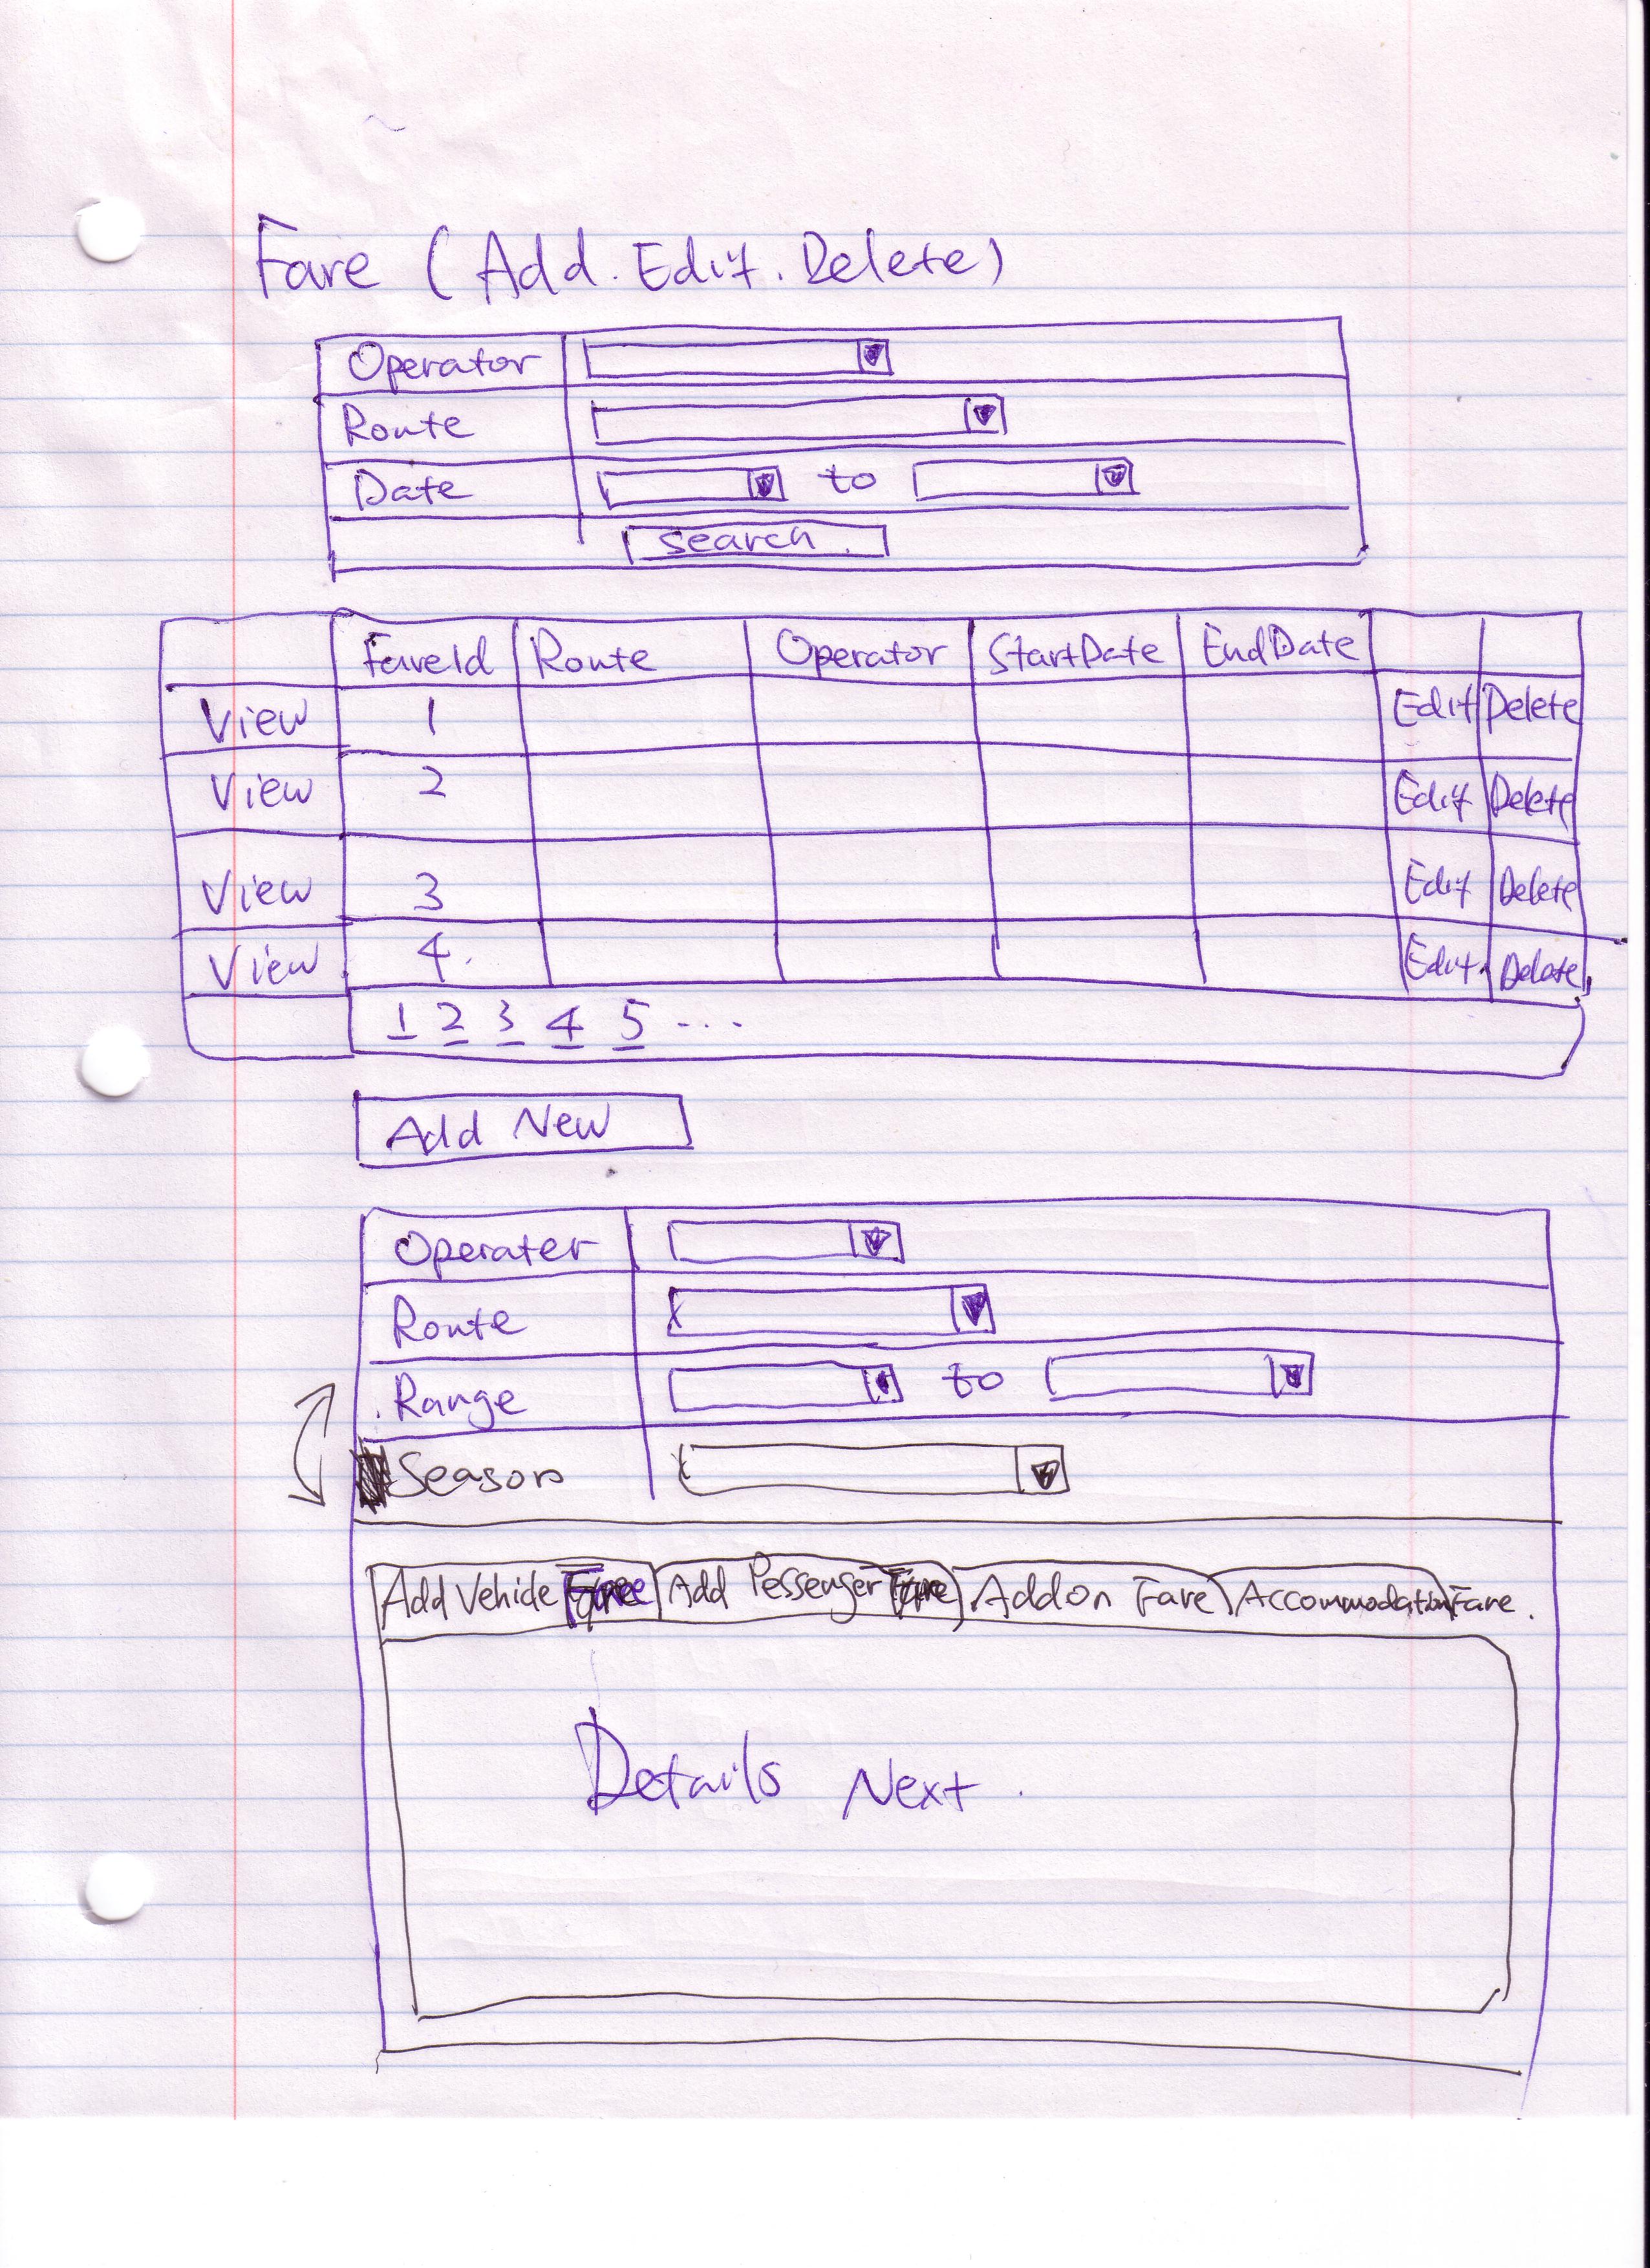 Fare (Add. Edit. Delete)
Operator
Route
Date to
Search.
FareId Route Operator StartDate EndDate
View 1 Edit Delete
View 2 Edit Delete
View 3 Edit Delete
View 4. Edit. Delete
1 2 3 4 5 ...
Add New
Operater
Route
Range to
Season
Add Vehicle Fare Add Pessenger Fare Addon Fare Accommodation Fare.
Details Next.